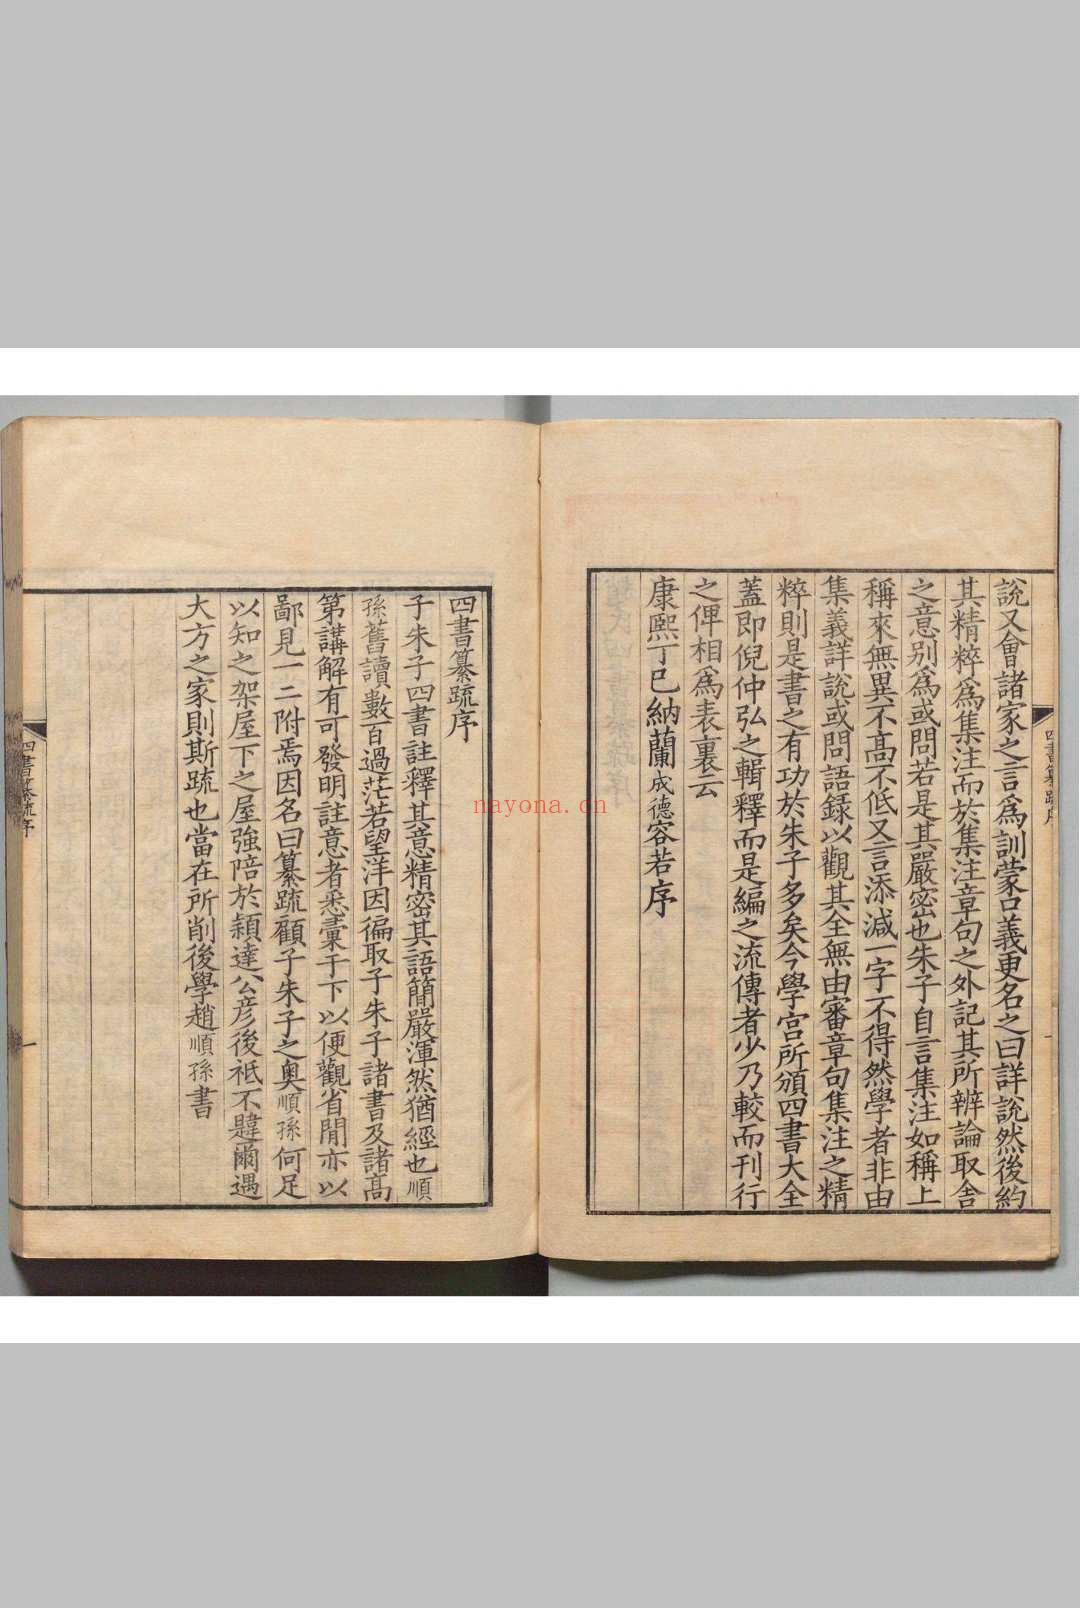 說又會諸家之言爲訓蒙口義更名之曰詳說然後約
其精粹爲集注而於集注章句之外記其所辨論取舍
之意别爲或問若是其嚴密也朱子自言集注如稱上
稱來無異不高不低又言添減一字不得然學者非由
集義詳說或問語録以觀其全無由審章句集注之精
粹則是書之有功於朱子多矣今學宫所頒四書大全
蓋即倪仲弘之輯釋而是編之流傳者少乃較而刊行
之俾相爲表裏云
康熙丁巳納蘭成德容若序
四書纂疏序
四書纂疏序
子朱子四書註釋其意精密其語簡嚴渾然猶經也順
孫舊讀數百過茫若望洋因徧取子朱子諸書及諸髙
第講解有可發明註意者悉稾于下以便觀省閒亦以
鄙見一二附焉因名曰纂疏顧子朱子之奥順孫何足
以知之架屋下之屋強陪於穎達公彦後祗不韙爾遇
大方之家則斯疏也當在所削後學趙順孫書
四書纂疏序
一
nayona.cn